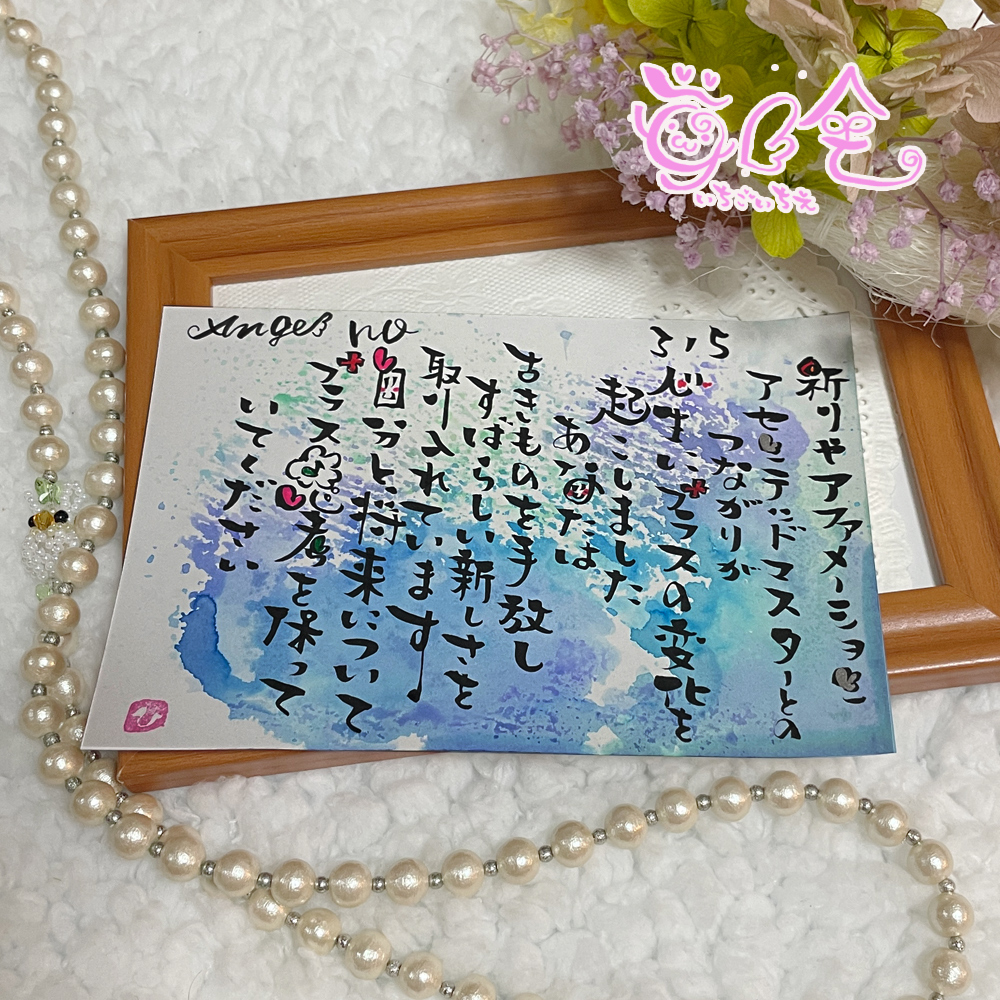 Angel no
315
祈りやアファメーション
アセンデッドマスターとの
つながりが
人生にプラスの変化を
起こしました
あなたは
古きものを手放し
すばらしい新しさを
取り入れています
自分と将来について
プラス思考を保って
いてください
いちごいちえ